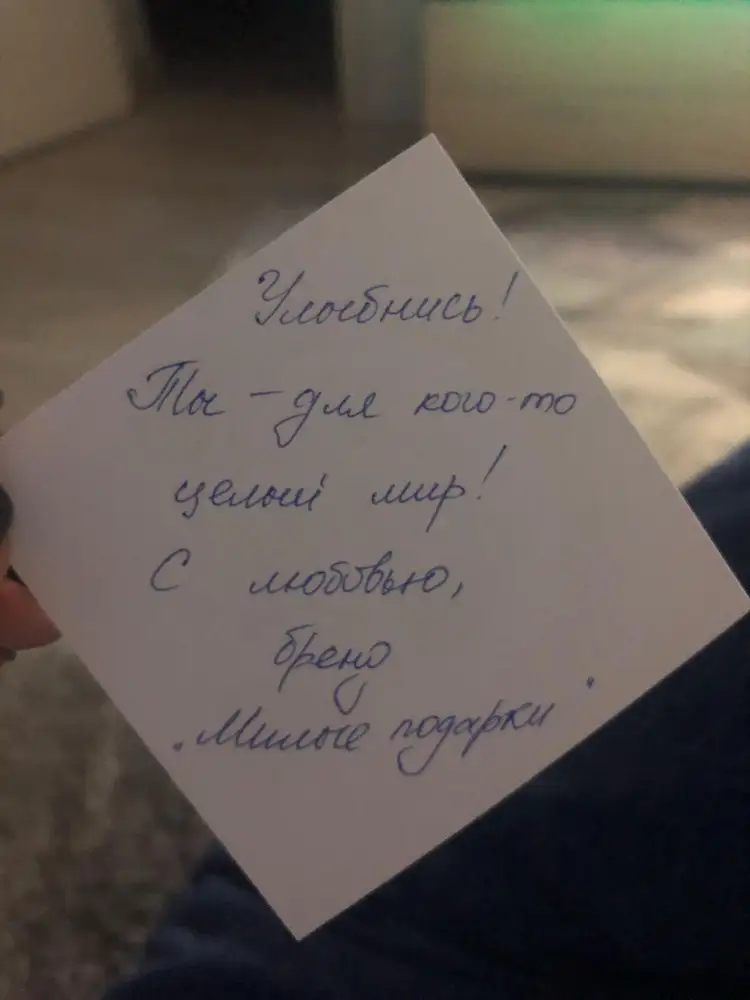 Улыбнись!
Ты - для кого-то
целый мир!
С любовью,
бренд
"Милые подарки"